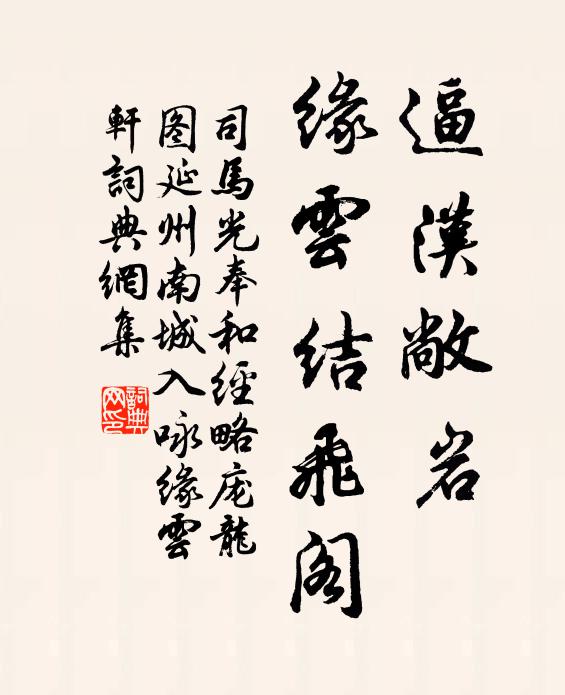 逼漢敞岩
緣雲結飛阁
司馬光奉和經略庞龍
图延州南城入咏緣雲
軒詞典網集
詞典网印